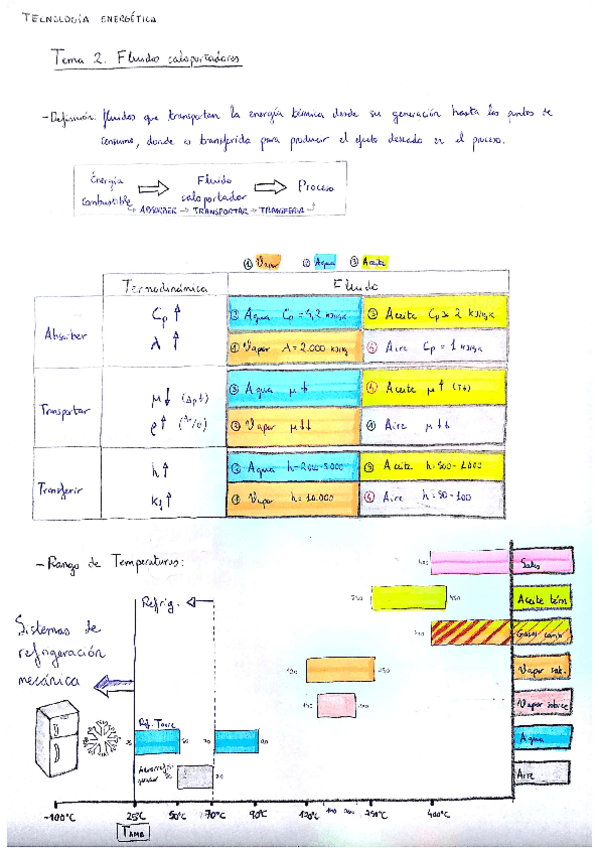 TECNOLOGÍA ENERGÉTICA
Tema 2. Fluidos caloportadores
- Definición: fluidos que transportan la energía térmica desde su generación hasta los puntos de
consumo, donde es transferida para producir el efecto deseado en el proceso.
Energía combustible ⇒ Fluido caloportador ⇒ Proceso
ABSORBER → TRANSPORTAR → TRANSFERIR
① Vapor ② Agua ③ Aceite
Termodinámica Fluido
Absorber
Cp ↑ Agua Cp = 4,2 kJ/kgK Aceite Cp ≈ 2 kJ/kgK
λ ↑ ① Vapor λ = 2.000 kJ/kg ④ Aire Cp = 1 kJ/kgK
Transportar
μ ↓ (Δp↓) Agua μ ↓ Aceite μ ↑ (T↓)
ρ ↑ Vapor μ ↓↓ ① Aire μ ↓↓
Transferir
h ↑ ② Agua h = 2000-5000 ③ Aceite h: 500-1000
① Vapor h = 10.000 ④ Aire h: 50-100
- Rango de Temperaturas:
Sales
Refrig.
250 Aceite térm
Sistemas de
refrigeración
mecánica
Gases comb
120 250 Vapor sat.
Vapor sobrec
Ref. Torre
25 50 70 90 Agua
Aire
-100°C 25°C 50°C 70°C 90°C 120°C 250°C 400°C
TAMB